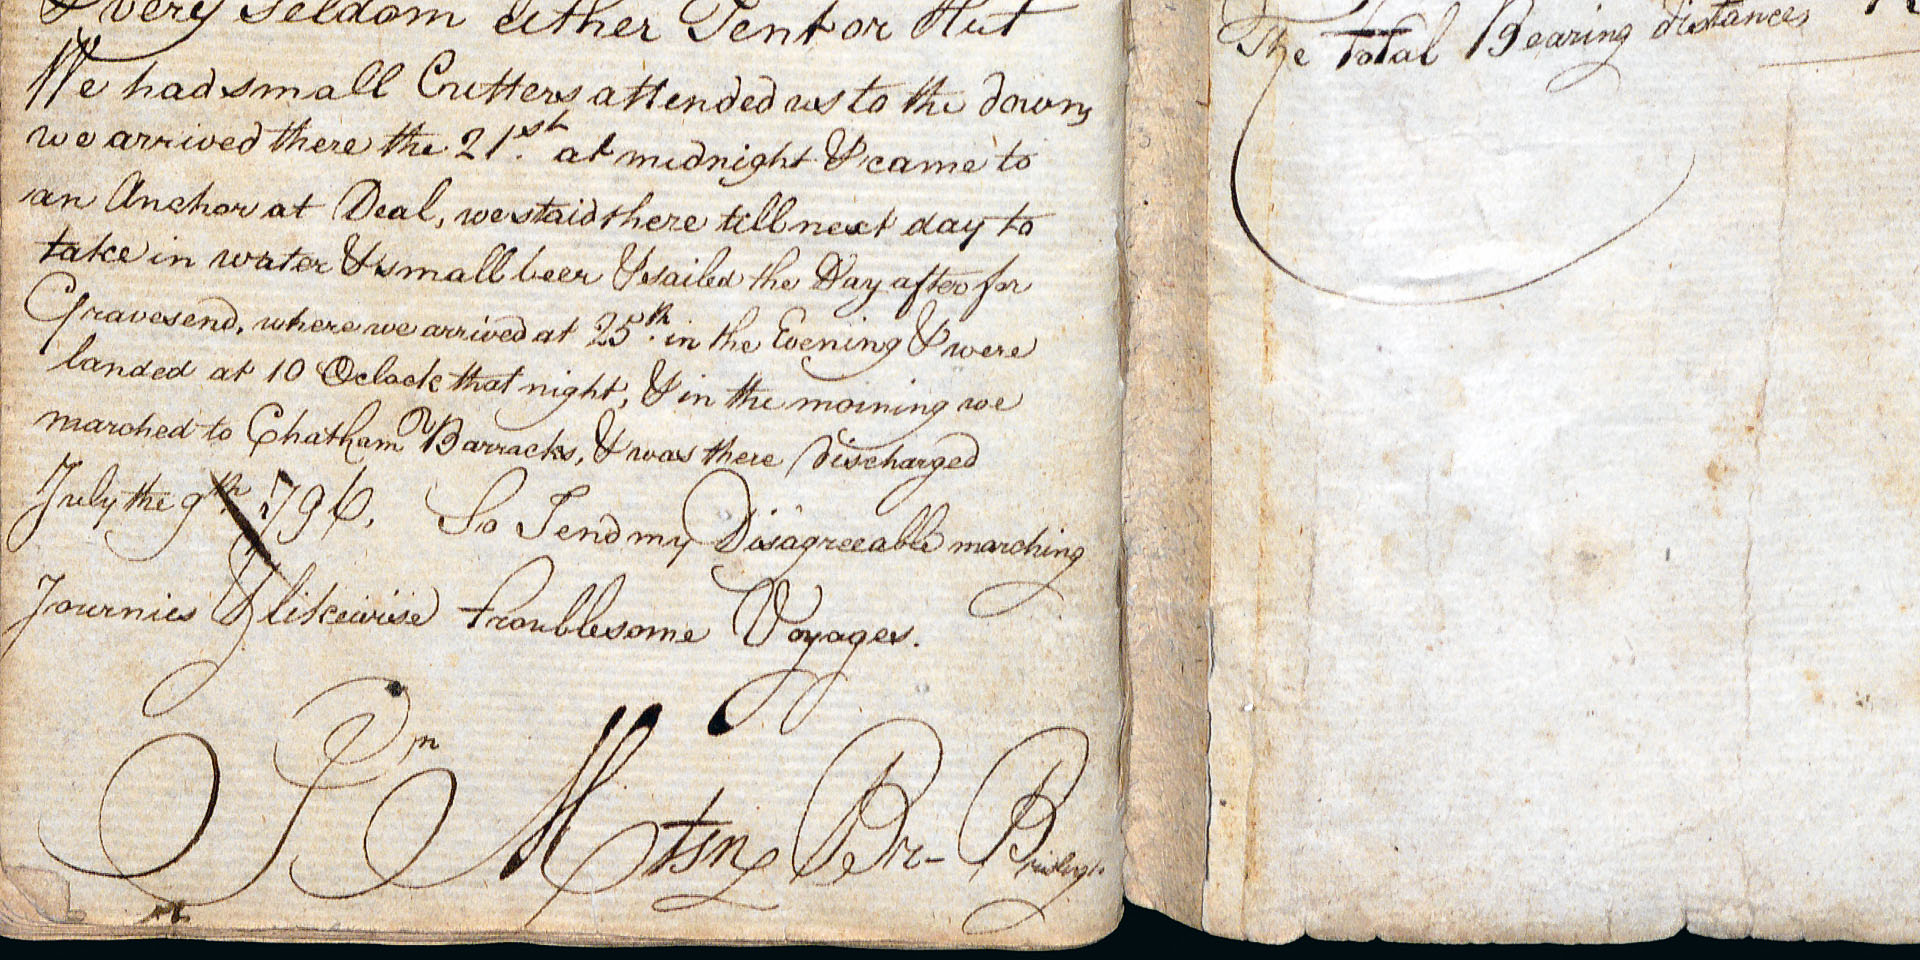 & very seldom either Tent or Hut
We had small Cutters attended us to the downs
we arrived there the 21st. at midnight & came to
an Anchor at Deal, we staid there till next day to
take in water & small beer & sailed the Day after for
Gravesend, where we arrived at 25th. in the Evening & were
landed at 10 Oclock that night, & in the morning we
marched to Chatham Barracks, & was there discharged
July the 9th. 1796. So I end my Disagreeable marching
Journies & likewise troublesome Voyages.
The total Bearing distances